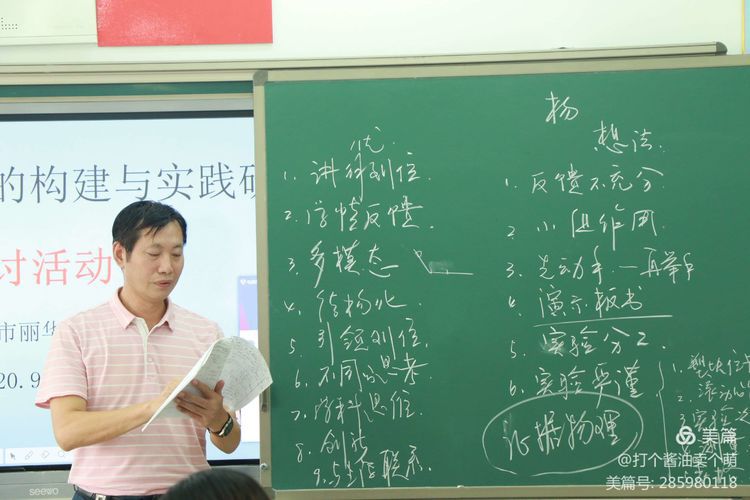 的构建与实践研
讨活动
市丽华
20.9
seewo
优
1. 讲得到位.
2. 学情反馈.
3. 多模态
4. 结构化.
5. 引领到位.
6. 不同的思考
7. 学科思维.
8. 创
9. 与生活联系.
杨
想法.
1. 反馈不充分
2. 小组作用
3. 先动手—再举手
4. 演示板书
5. 实验分工.
6. 实验严谨.
证据物理
1.
2. 滚动
3. 实验
美篇
@打个酱油卖个萌
美篇号: 285980118